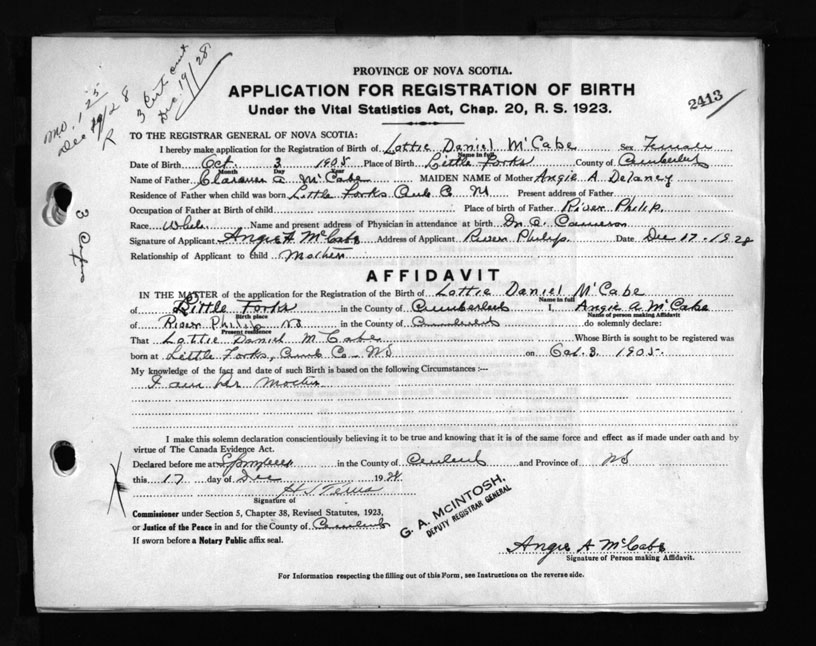 PROVINCE OF NOVA SCOTIA.
APPLICATION FOR REGISTRATION OF BIRTH
Under the Vital Statistics Act, Chap. 20, R. S. 1923.
2413
Dec 19/28
3 Cert
TO THE REGISTRAR GENERAL OF NOVA SCOTIA:
I hereby make application for the Registration of Birth of Lottie Daniel McCabe Sex Female
Name in full
Date of Birth Oct. 3 1905 Place of Birth Little Forks County of Cumberland
Month Year
Name of Father Clarence A McCabe MAIDEN NAME of Mother Angie A Delaney
Residence of Father when child was born Little Forks Cumb Co NS Present address of Father
Occupation of Father at Birth of child Place of birth of Father River Philip
Race White Name and present address of Physician in attendance at birth Dr. A. Cameron
Signature of Applicant Angie A McCabe Address of Applicant River Philip Date Dec 17 1928
Relationship of Applicant to child Mother
AFFIDAVIT
IN THE MATTER of the application for the Registration of the Birth of Lottie Daniel McCabe
Name in full
of Little Forks in the County of Cumberland I, Angie A McCabe
Birth place Name of person making Affidavit
of River Philip NS in the County of Cumberland do solemnly declare:
Present residence
That Lottie Daniel McCabe Whose Birth is sought to be registered was
born at Little Forks, Cumb Co NS on Oct. 3. 1905.
My knowledge of the fact and date of such Birth is based on the following Circumstances :—
I am her Mother
I make this solemn declaration conscientiously believing it to be true and knowing that it is of the same force and effect as if made under oath and by
virtue of The Canada Evidence Act.
Declared before me at in the County of and Province of NS
this 17 day of Dec 1928
Signature of
Commissioner under Section 5, Chapter 38, Revised Statutes, 1923,
or Justice of the Peace in and for the County of
If sworn before a Notary Public affix seal.
G. A. McINTOSH,
DEPUTY REGISTRAR GENERAL
Angie A McCabe
Signature of Person making Affidavit.
For Information respecting the filling out of this Form, see Instructions on the reverse side.